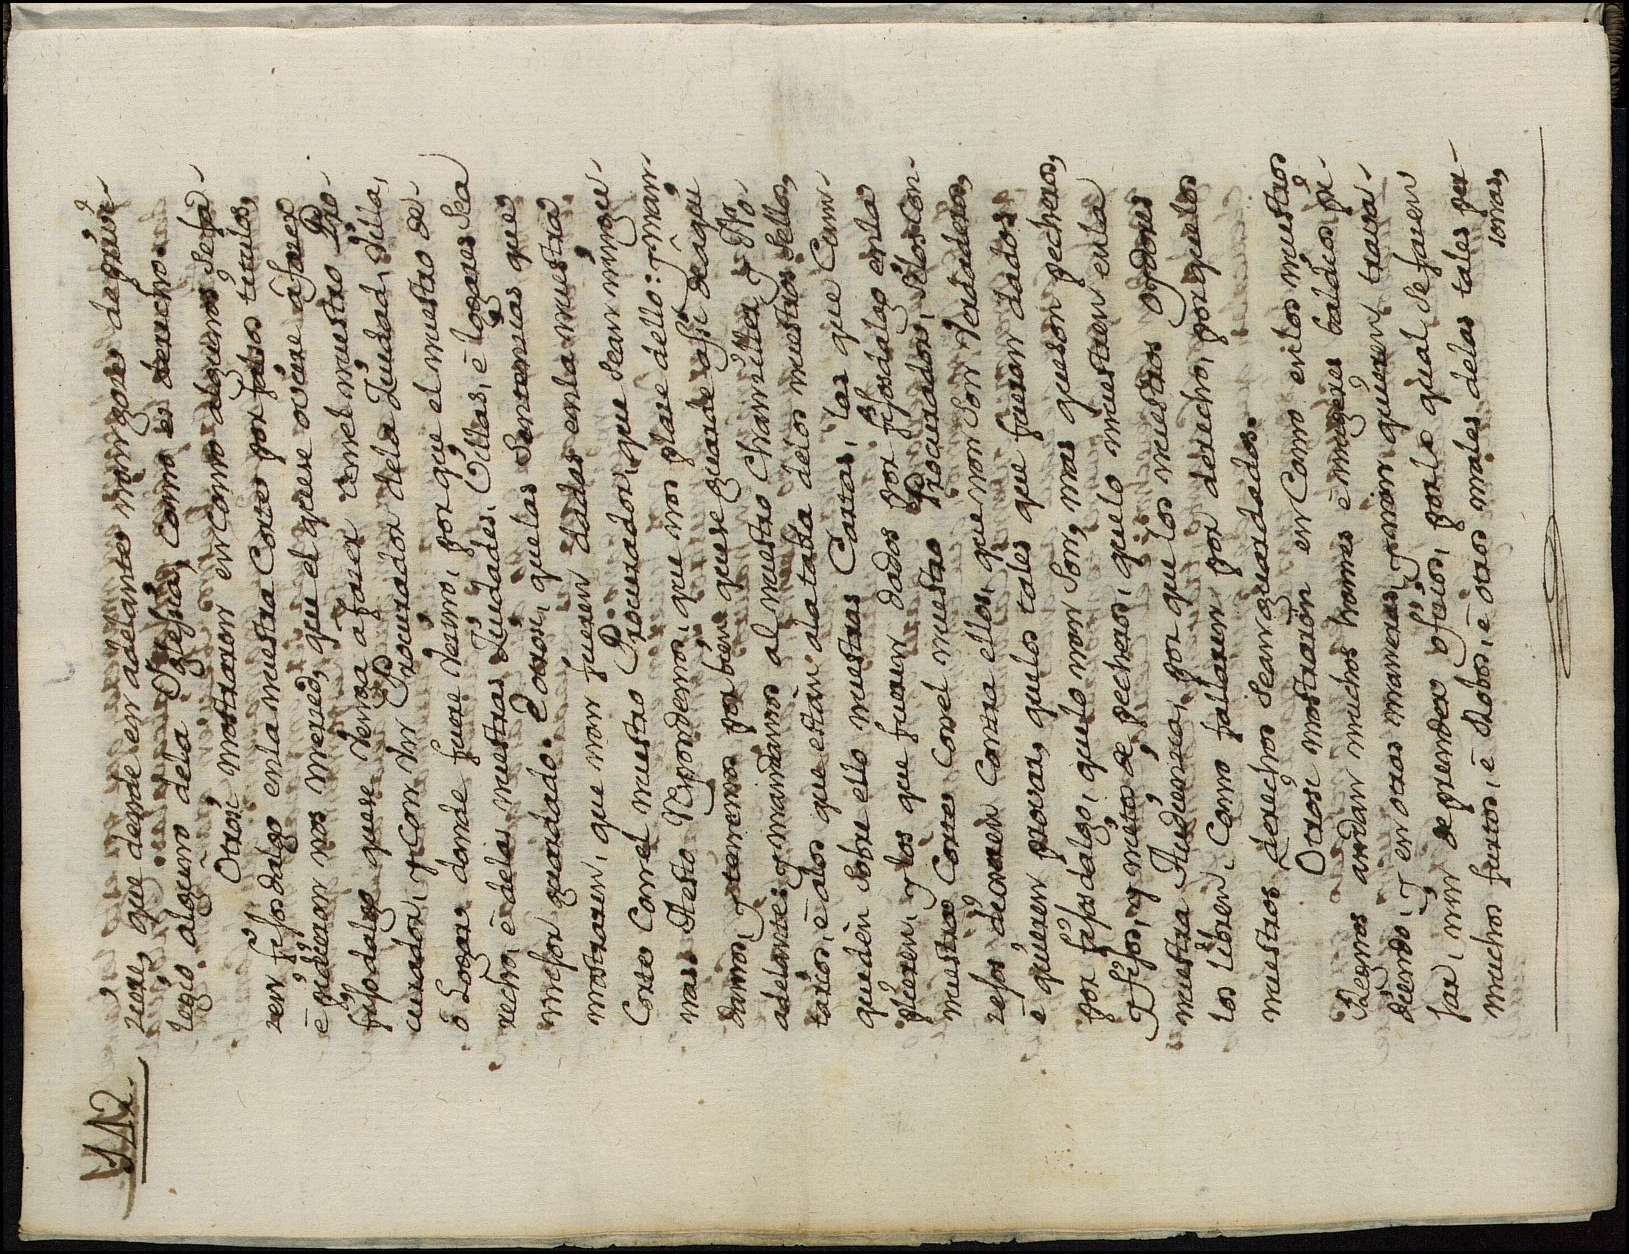 112.
zcan, que deyde en adelante non gozen de previ-
legio alguno dela Yglesia, Como es derecho.
Otrosi mostraron en Como algunos se fa-
zen fijosdalgo en la nuestra Corte por falsos titulos,
è pidieron nos merced, que el que se oviere à fazer
fijodalgo que se venga a fazer con el nuestro Pro-
curador, y con un Procurador dela Ziudad, ò Villa,
ò Logar donde fuere vezino, por que el nuestro de-
recho, è delas nuestras Ziudades, Villas, è logares sea
mejor guardado. E otrosi, que las Sentencias que
mostraren, que non fueren dadas en la nuestra
Corte Con el nuestro Procurador, que sean ningu-
nas. A esto Respondemos, que nos plaze dello: y man-
damos, y tenemos por bien que se guarde assi de aqui
adelante: y mandamos al nuestro Chanciller, y No-
tarios, è alos que estàn ala tabla delos nuestros Sellos,
que dèn sobre ello nuestras Cartas, las que Cum-
plieren, y los que fueren dados por fijosdalgo en la
nuestra Corte Con el nuestro Procurador, è los Con-
cejos dixeren Contra ellos, que non son verdaderos,
è quieren provar, quelos tales que fueron dados
por fijosdalgo, que lo non son, mas que son pecheros,
y fijos, y nietos de pecheros, que lo muestren en la
nuestra Audiencia, por que los nuestros Oydores
los libren, Como fallaren por derecho, por que los
nuestros derechos sean guardados.
Otrosi mostraron en Como en los nuestros
Regnos andan muchos homes è mugeres baldios pi-
diendo, y en otras maneras, y non quieren traba-
jar, nin deprender oficios, por lo qual se fazen
muchos furtos, è Robos, è otros males delas tales per-
sonas,